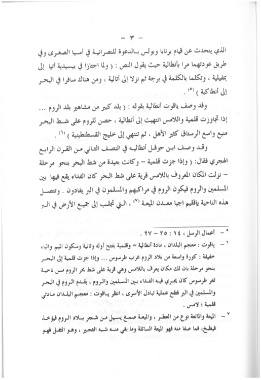 - ٣ -
الذي يتحدث عن قيام برنابا وبولس بالدعوة للنصرانية في آسيا الصغرى وفي
طريق عودتهما مرا بأنطالية حيث يقول النص : ( ولما اجتازا في بيسيدية أتيا إلى
بمفيلية ، وتكلما بالكلمة في برجة ثم نزلا إلى أتالية ، ومن هناك سافرا في البحر
إلى أنطاكية ) (٥) .
وقد وصف ياقوت أنطالية بقوله : ( بلد كبير من مشاهير بلاد الروم ...
إذا تجاوزت قلمية واللامس انتهيت إلى أنطالية ، حصن للروم على شط البحر
منيع واسع الرستاق كثير الأهل ، ثم تنتهي إلى خليج القسطنطينية ) (٦) .
وقد وصف ابن حوقل أنطالية في النصف الثاني من القرن الرابع
الهجري فقال : ( وإذا جزت قلمية - وكانت بعيدة من شط البحر بنحو مرحلة
- نزلت المكان المعروف باللامس وهي قرية على شط البحر كان الفداء يقع فيها بين
المسلمين والروم فيكون الروم في مراكبهم والمسلمون في البر يفادون . وتتصل
هذه الناحية بإقليم اجيا معدن الميعة (٧) ، التي تجلب إلى جميع الأرض في البر
٥ - أعمال الرسل ، ١٤ : ٢٥ - ٢٧ .
٦ - ياقوت : معجم البلدان ، مادة أنطالية - وقلمية بفتح أوله وثانية وسكون الميم والياء
خفيفة : كورة واسعة من بلاد الروم قرب طرسوس ... وإذا جزت قلمية إلى البحر
بنحو مرحلة بان لك مكان يعرف باللامس وهي قرية على شط بحر الروم من ناحية
ثغر طرسوس كان يجري فيه الفداء بين المسلمين والروم ، يقدم الروم في البحر
والمسلمين في البر فتقع عملية تبادل الأسرى ، انظر ياقوت : معجم البلدان مادتي
قلمية ؛ لامس .
٧ - الميعة والمائعة نوع من العطر ، والميعة صمغ يسيل من شجر ببلاد الروم يؤخذ
فيطبخ ، فما صفا منه فهو الميعة السائلة وما بقي منه شبه الثجير ، وهو الثفل فهو